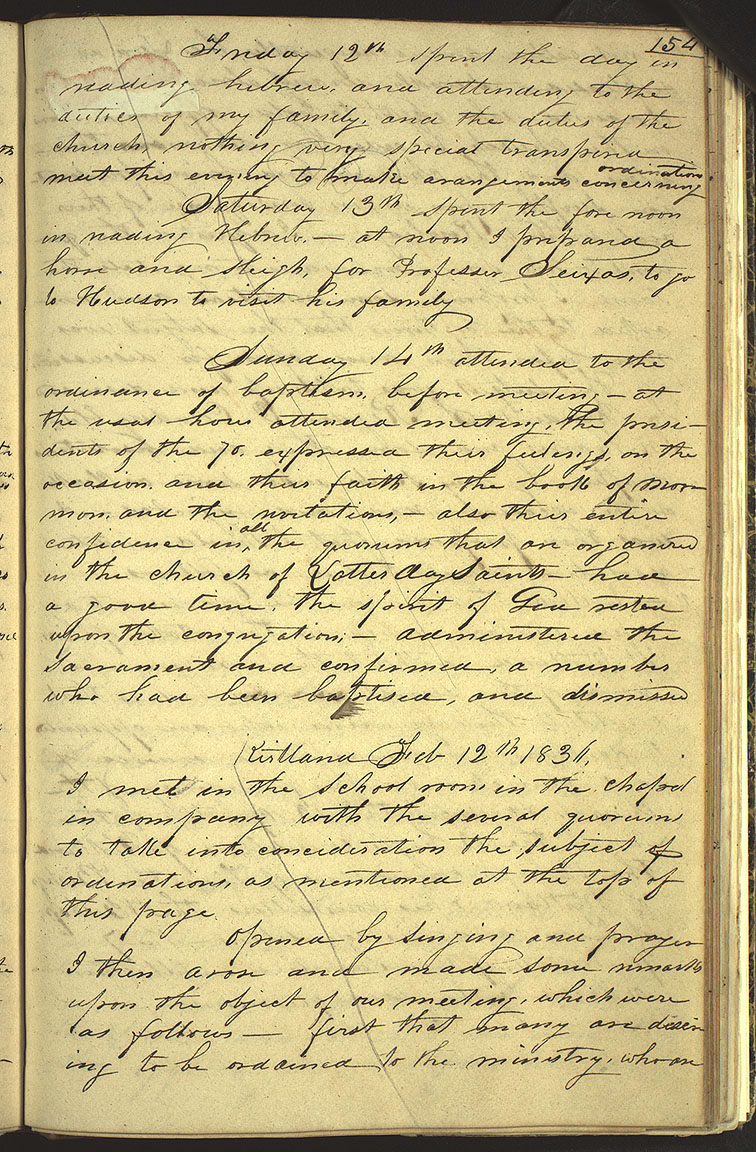 154
Friday 12th spent the day in
reading hebrew, and attending to the
duties of my family, and the duties of the
church, nothing very special transpired
meet this evening to make arangements concerning ordinations
Saturday 13th spent the fore noon
in reading Hebrew. — at noon I prepared a
horse and sleigh, for Professer Seixas, to go
to Hudson to visit his family
Sunday 14th attended to the
ordinance of baptism, before meeting — at
the usal hour attended meeting, the presi-
dents of the 70. expressed their feelings, on the
occasion, and their faith in the book of Mor-
mon, and the revelations, — also their entire
confidence in all the quorums that are organized
in the church of Latter day Saints — had
a good time, the spirit of God rested
upon the congregation; — administered the
Sacrament and confirmed, a number
who had been baptised, and dismissed
Kirtland Feb 12th 1836,
I met in the School room in the chapel
in company with the several quorums
to take into concideration the subject of
ordinations, as mentioned at the top of
this page.
opened by singing and prayer
I then arose and made some remarks
upon the object of our meeting, which were
as follows — first that many are desir-
ing to be ordained to the ministry, who are